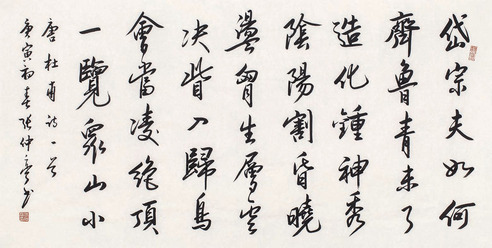 岱宗夫如何
齊魯青未了
造化鍾神秀
陰陽割昏曉
盪胷生層雲
决眥入歸鳥
會當凌絶頂
一覽衆山小
唐杜甫詩一首
庚寅初春張仲亭書